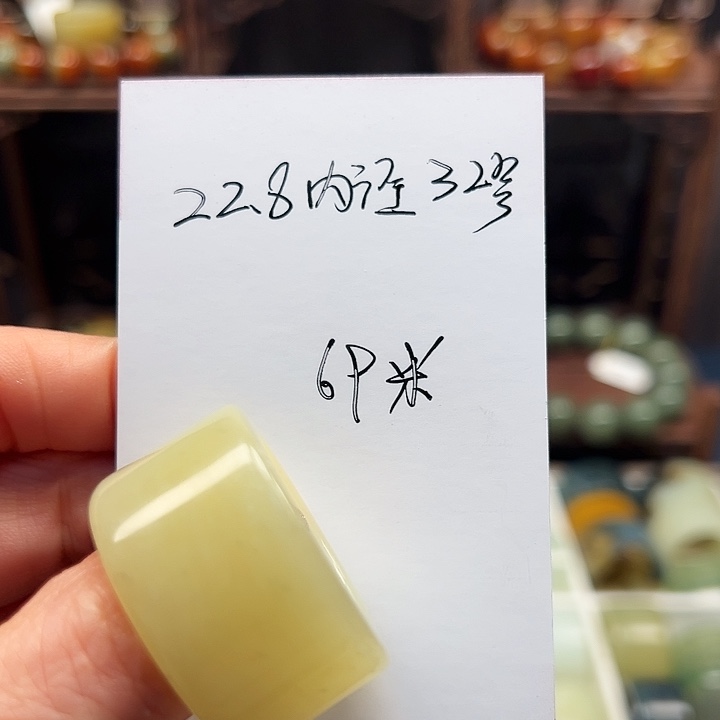 22.8内径 32寥
6P米